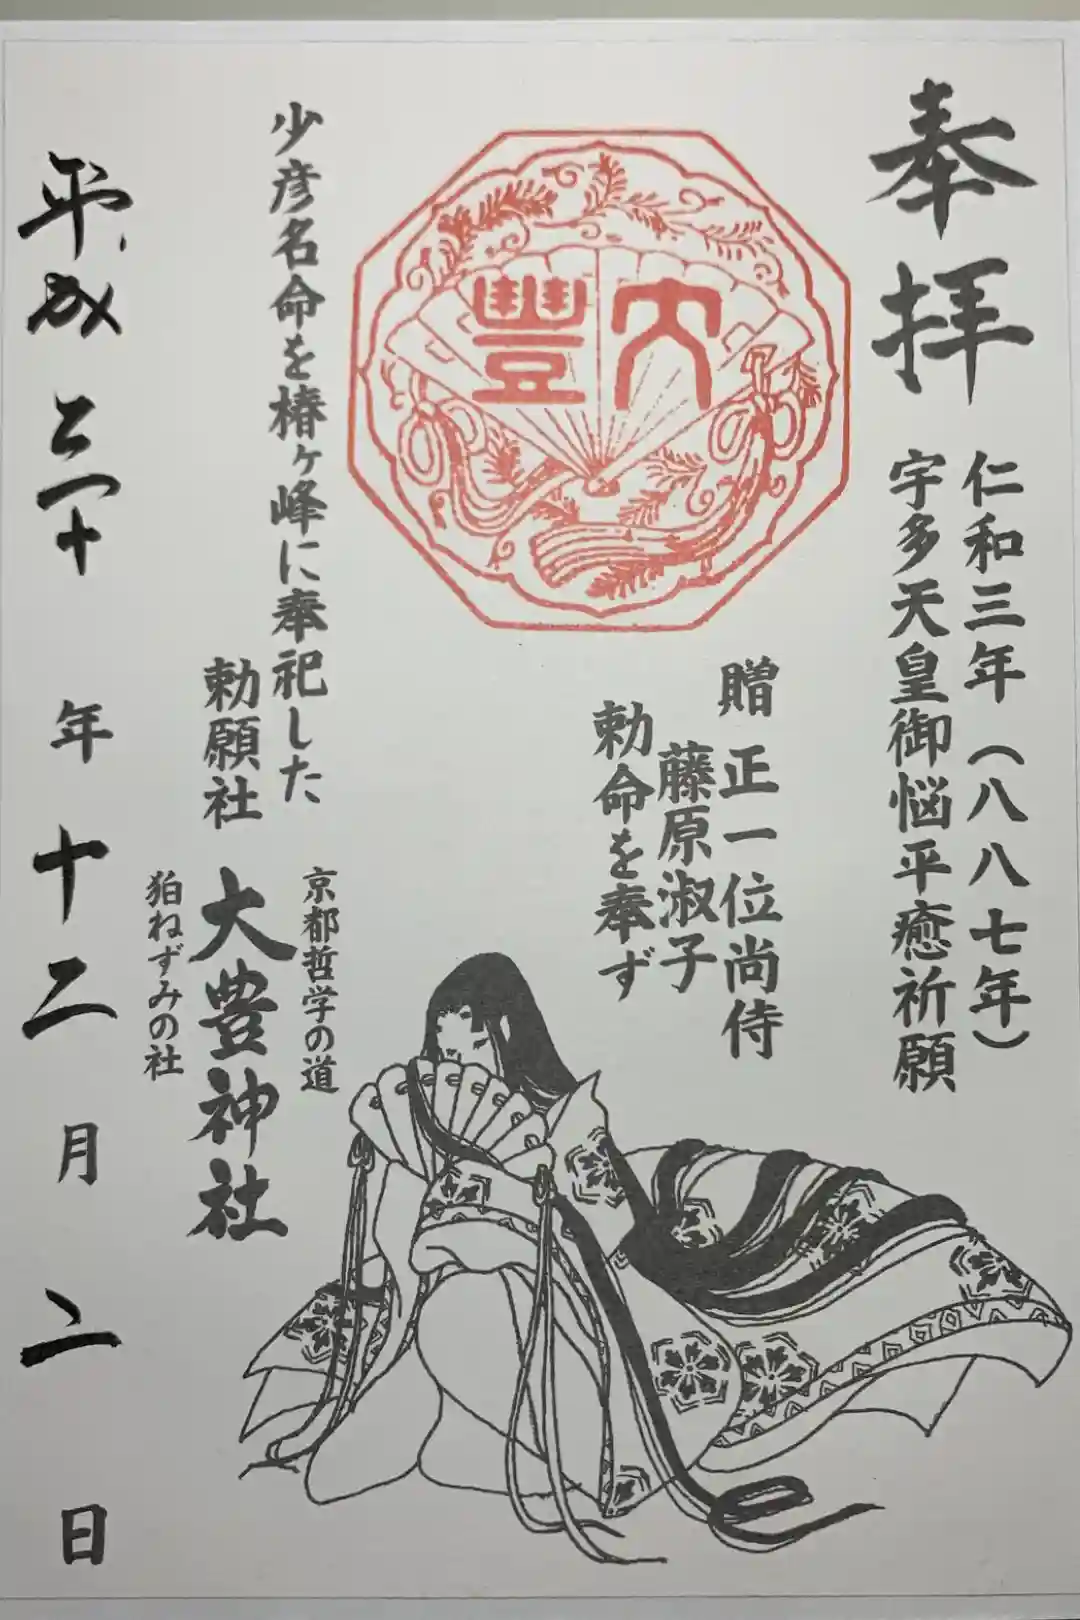 奉拝
仁和三年（八八七年）
宇多天皇御悩平癒祈願
贈 正一位尚侍
藤原淑子
勅命を奉ず
大豐
少彦名命を椿ヶ峰に奉祀した
勅願社
京都哲学の道
大豊神社
狛ねずみの社
平成三十年十二月二日